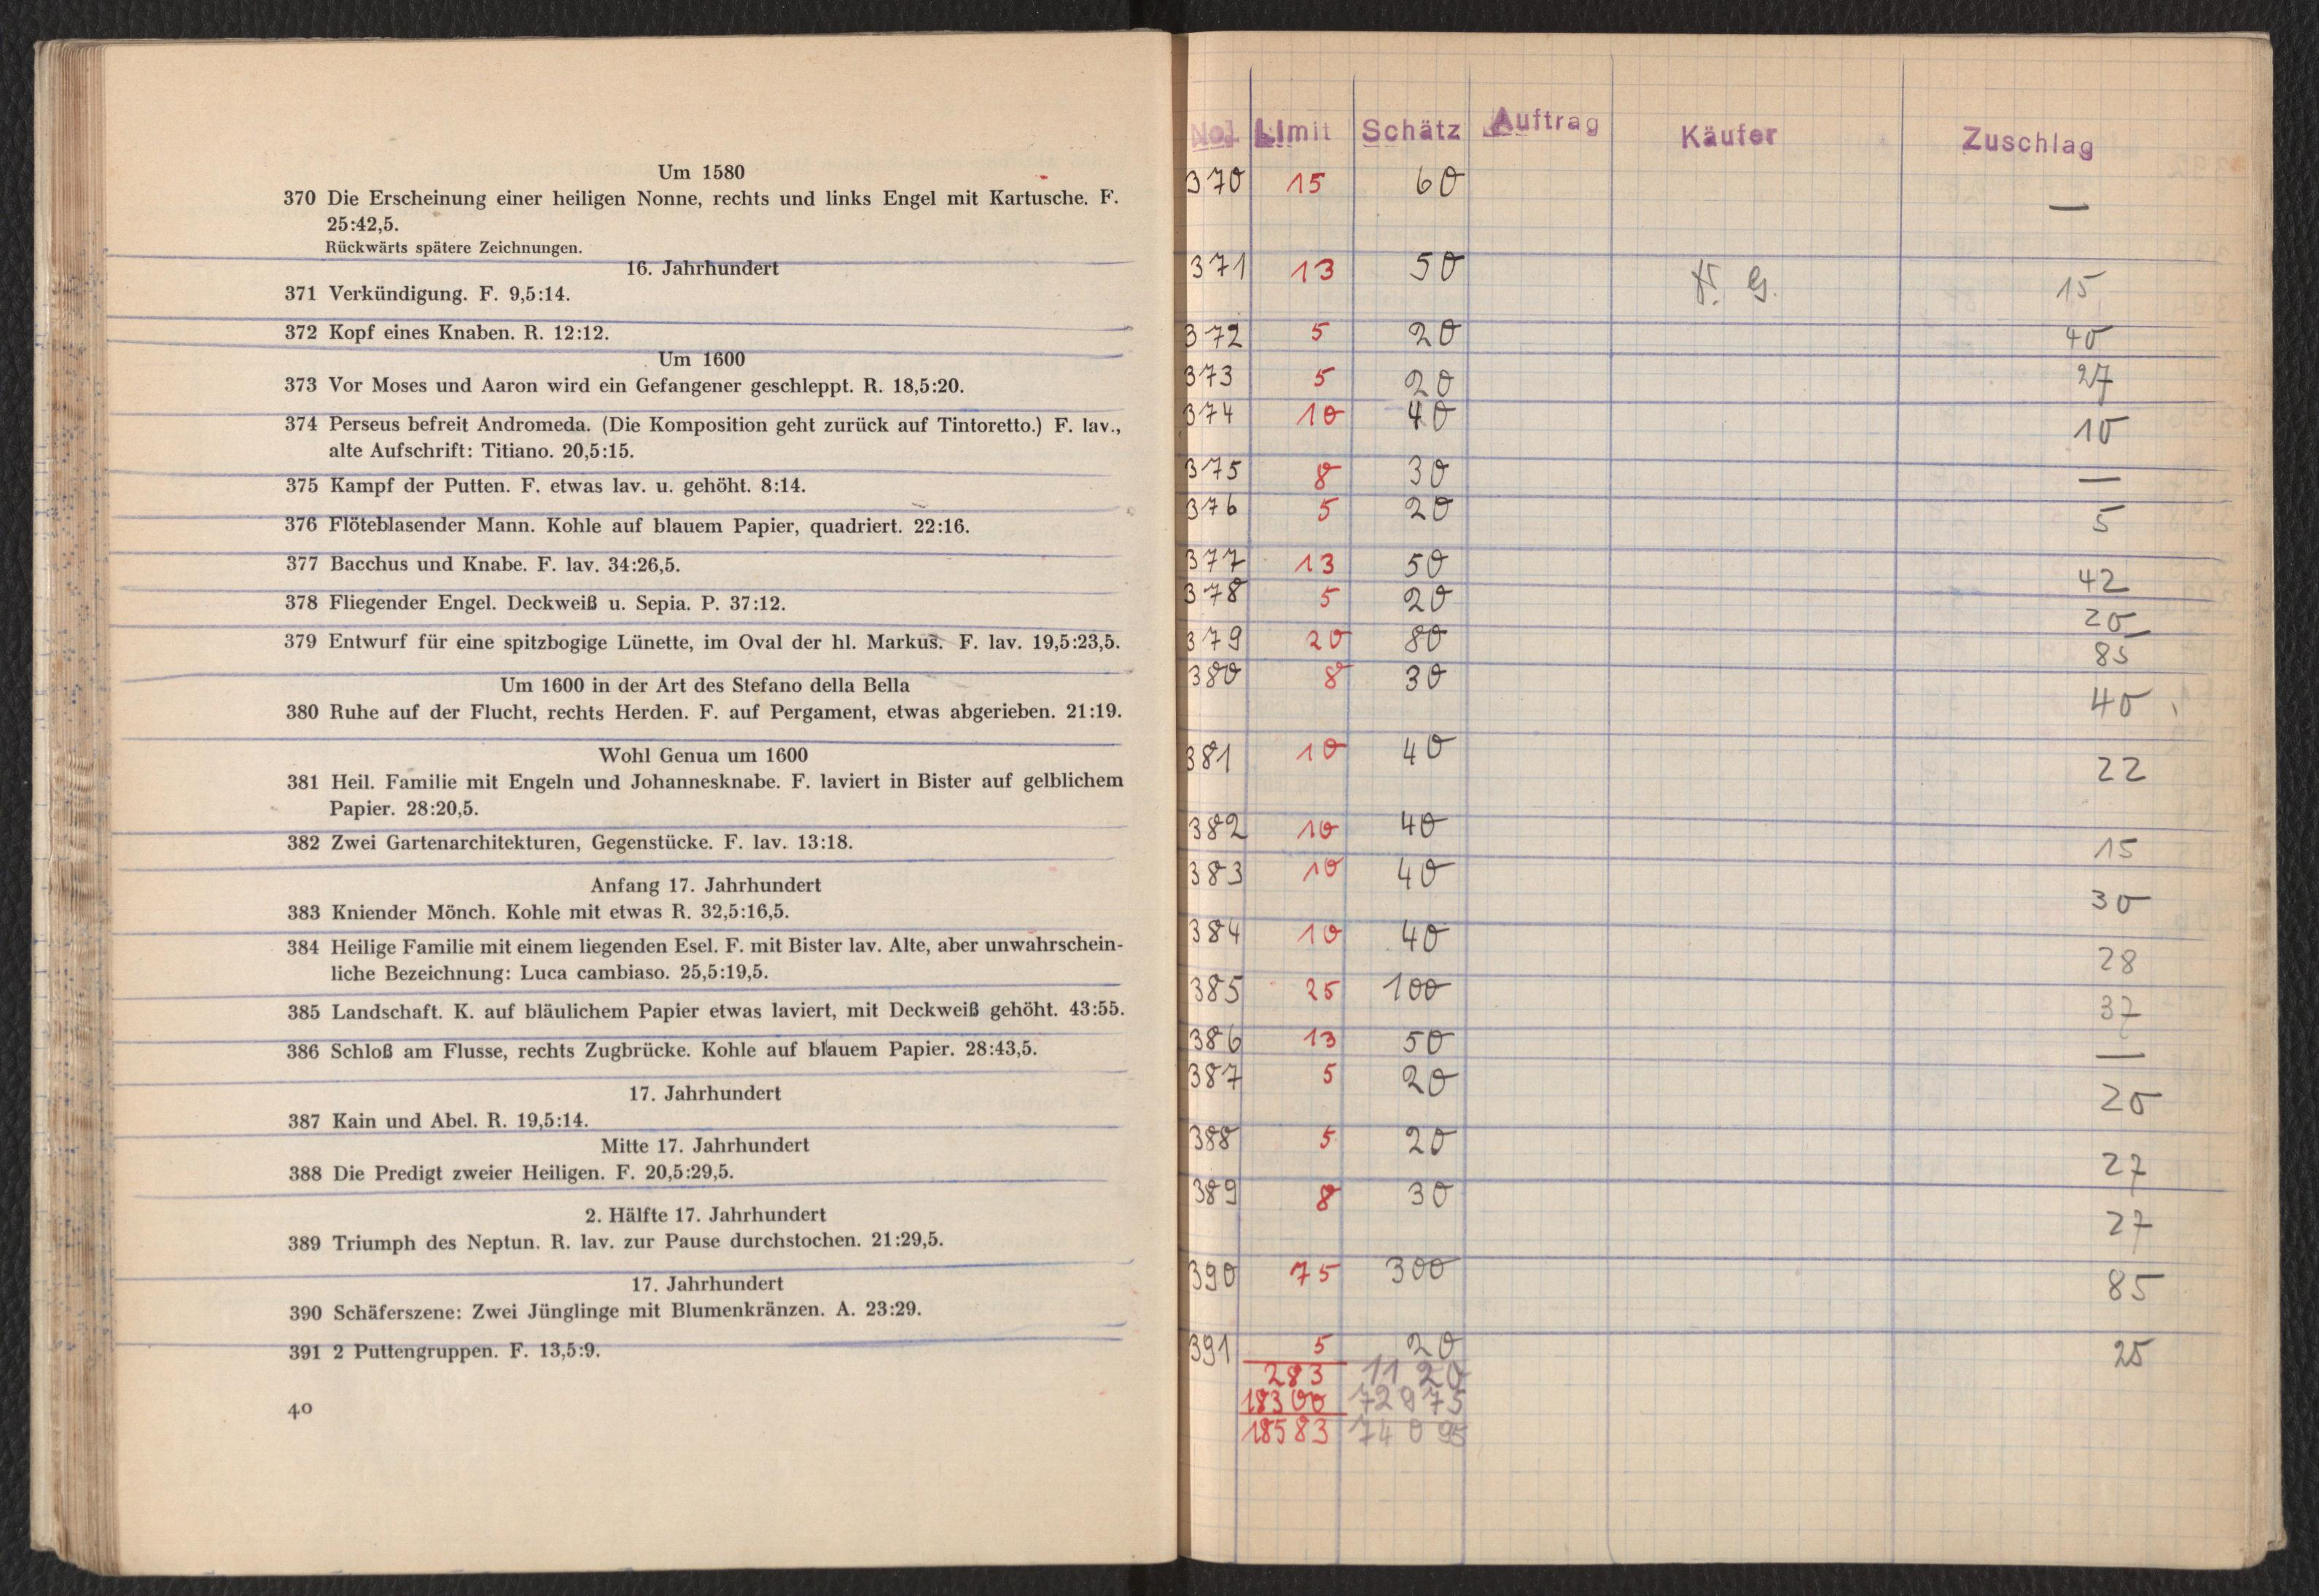 Um 1580
370 Die Erscheinung einer heiligen Nonne, rechts und links Engel mit Kartusche. F.
25:42,5.
Rückwärts spätere Zeichnungen.
16. Jahrhundert
371 Verkündigung. F. 9,5:14.
372 Kopf eines Knaben. R. 12:12.
Um 1600
373 Vor Moses und Aaron wird ein Gefangener geschleppt. R. 18,5:20.
374 Perseus befreit Andromeda. (Die Komposition geht zurück auf Tintoretto.) F. lav.,
alte Aufschrift: Titiano. 20,5:15.
375 Kampf der Putten. F. etwas lav. u. gehöht. 8:14.
376 Flöteblasender Mann. Kohle auf blauem Papier, quadriert. 22:16.
377 Bacchus und Knabe. F. lav. 34:26,5.
378 Fliegender Engel. Deckweiß u. Sepia. P. 37:12.
379 Entwurf für eine spitzbogige Lünette, im Oval der hl. Markus. F. lav. 19,5:23,5.
Um 1600 in der Art des Stefano della Bella
380 Ruhe auf der Flucht, rechts Herden. F. auf Pergament, etwas abgerieben. 21:19.
Wohl Genua um 1600
381 Heil. Familie mit Engeln und Johannesknabe. F. laviert in Bister auf gelblichem
Papier. 28:20,5.
382 Zwei Gartenarchitekturen, Gegenstücke. F. lav. 13:18.
Anfang 17. Jahrhundert
383 Kniender Mönch. Kohle mit etwas R. 32,5:16,5.
384 Heilige Familie mit einem liegenden Esel. F. mit Bister lav. Alte, aber unwahrschein-
liche Bezeichnung: Luca cambiaso. 25,5:19,5.
385 Landschaft. K. auf bläulichem Papier etwas laviert, mit Deckweiß gehöht. 43:55.
386 Schloß am Flusse, rechts Zugbrücke. Kohle auf blauem Papier. 28:43,5.
17. Jahrhundert
387 Kain und Abel. R. 19,5:14.
Mitte 17. Jahrhundert
388 Die Predigt zweier Heiligen. F. 20,5:29,5.
2. Hälfte 17. Jahrhundert
389 Triumph des Neptun. R. lav. zur Pause durchstochen. 21:29,5.
17. Jahrhundert
390 Schäferszene: Zwei Jünglinge mit Blumenkränzen. A. 23:29.
391 2 Puttengruppen. F. 13,5:9.
40
No. Limit Schätz Auftrag Käufer Zuschlag
370 15 60 —
371 13 50 G. 15
372 5 20 40
373 5 20 27
374 10 40 10
375 8 30 —
376 5 20 5
377 13 50 42
378 5 20 20
379 20 80 85
380 8 30 40
381 10 40 22
382 10 40 15
383 10 40 30
384 10 40 28
385 25 100 37
386 13 50 —
387 5 20 20
388 5 20 27
389 8 30 27
390 75 300 85
391 5 20 25
283 1120
18300 72975
18583 74095